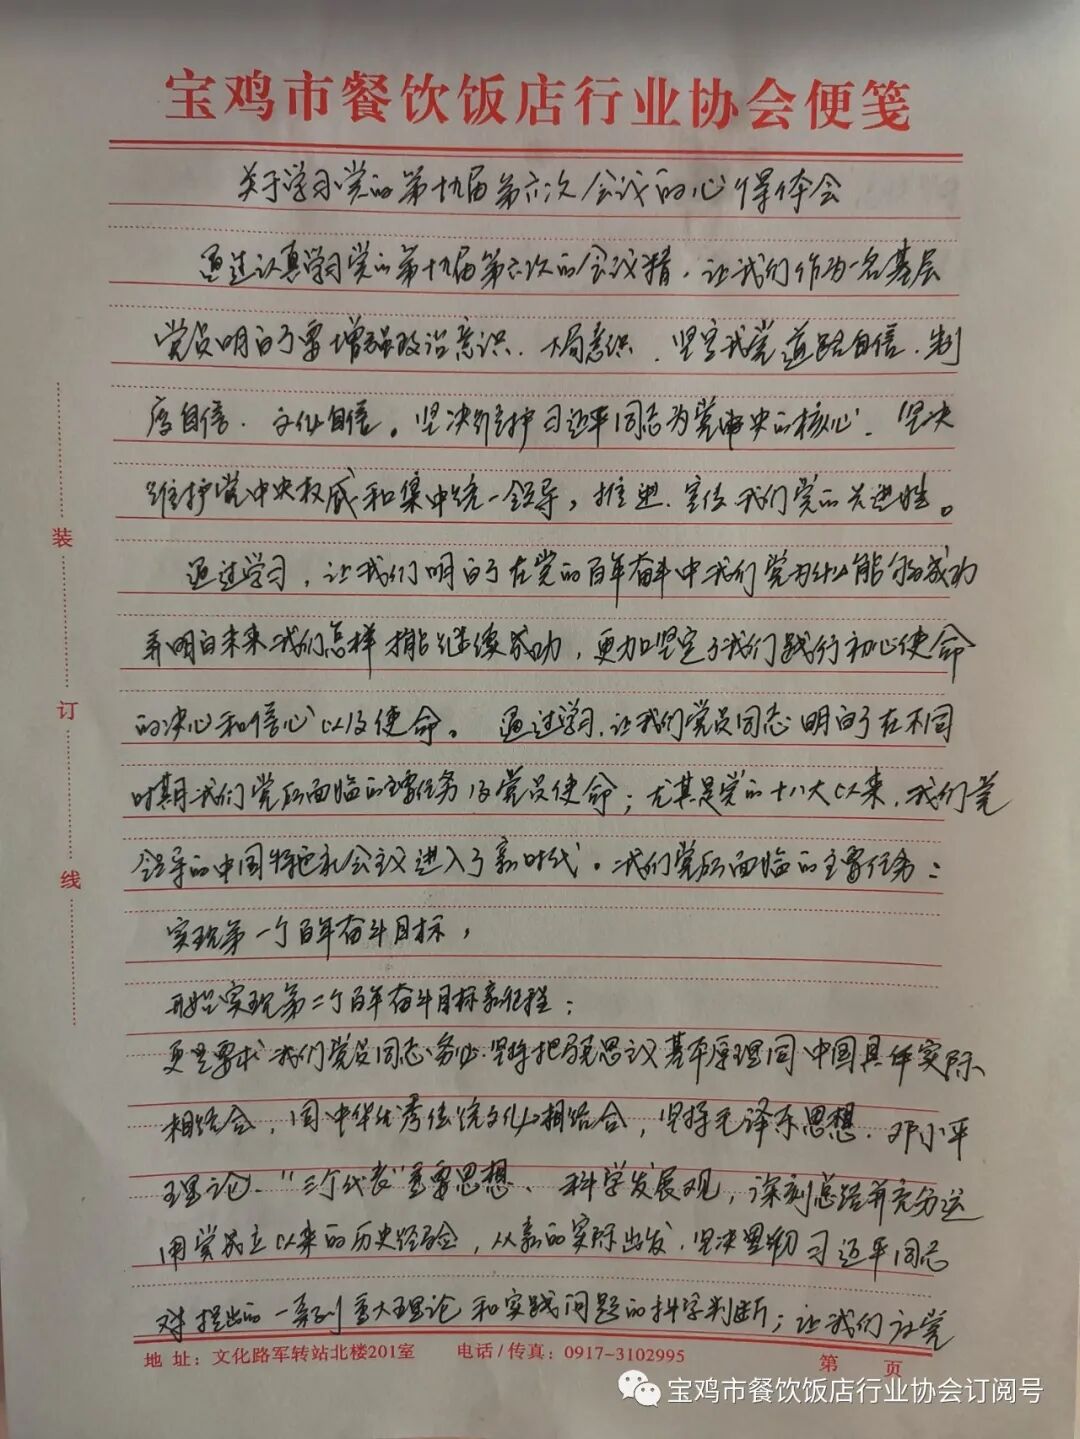 宝鸡市餐饮饭店行业协会便笺
关于学习党的第十九届第六次会议的心得体会
通过认真学习党的第十九届第六次的会议精，让我们作为一名基层
党员明白了要增强政治意识、大局意识、坚定我党道路自信、制
度自信、文化自信。坚决维护习近平同志为党中央的核心、坚决
维护党中央权威和集中统一领导，推进、宣传我们党的先进性。
通过学习，让我们明白了在党的百年奋斗中我们党为什么能够成功
弄明白未来我们怎样才能继续成功，更加坚定了我们践行初心使命
的决心和信心以及使命。通过学习，让我们党员同志明白了在不同
时期我们党所面临的主要任务及党员使命；尤其是党的十八大以来，我们党
领导的中国特色社会主义进入了新时代。我们党所面临的主要任务：
实现第一个百年奋斗目标，
开始实现第二个百年奋斗目标新征程；
更是要求我们党员同志务必坚持把马克思主义基本原理同中国具体实际
相结合，同中华优秀传统文化相结合，坚持毛泽东思想、邓小平
理论、"三个代表"重要思想、科学发展观，深刻总结并充分运
用党成立以来的历史经验，从新的实际出发，坚决 习近平同志
对提出的一系列重大理论和实践问题的科学判断；让我们 党
装
订
线
地 址：文化路军转站北楼201室 电话/传真：0917-3102995 第 页
宝鸡市餐饮饭店行业协会订阅号